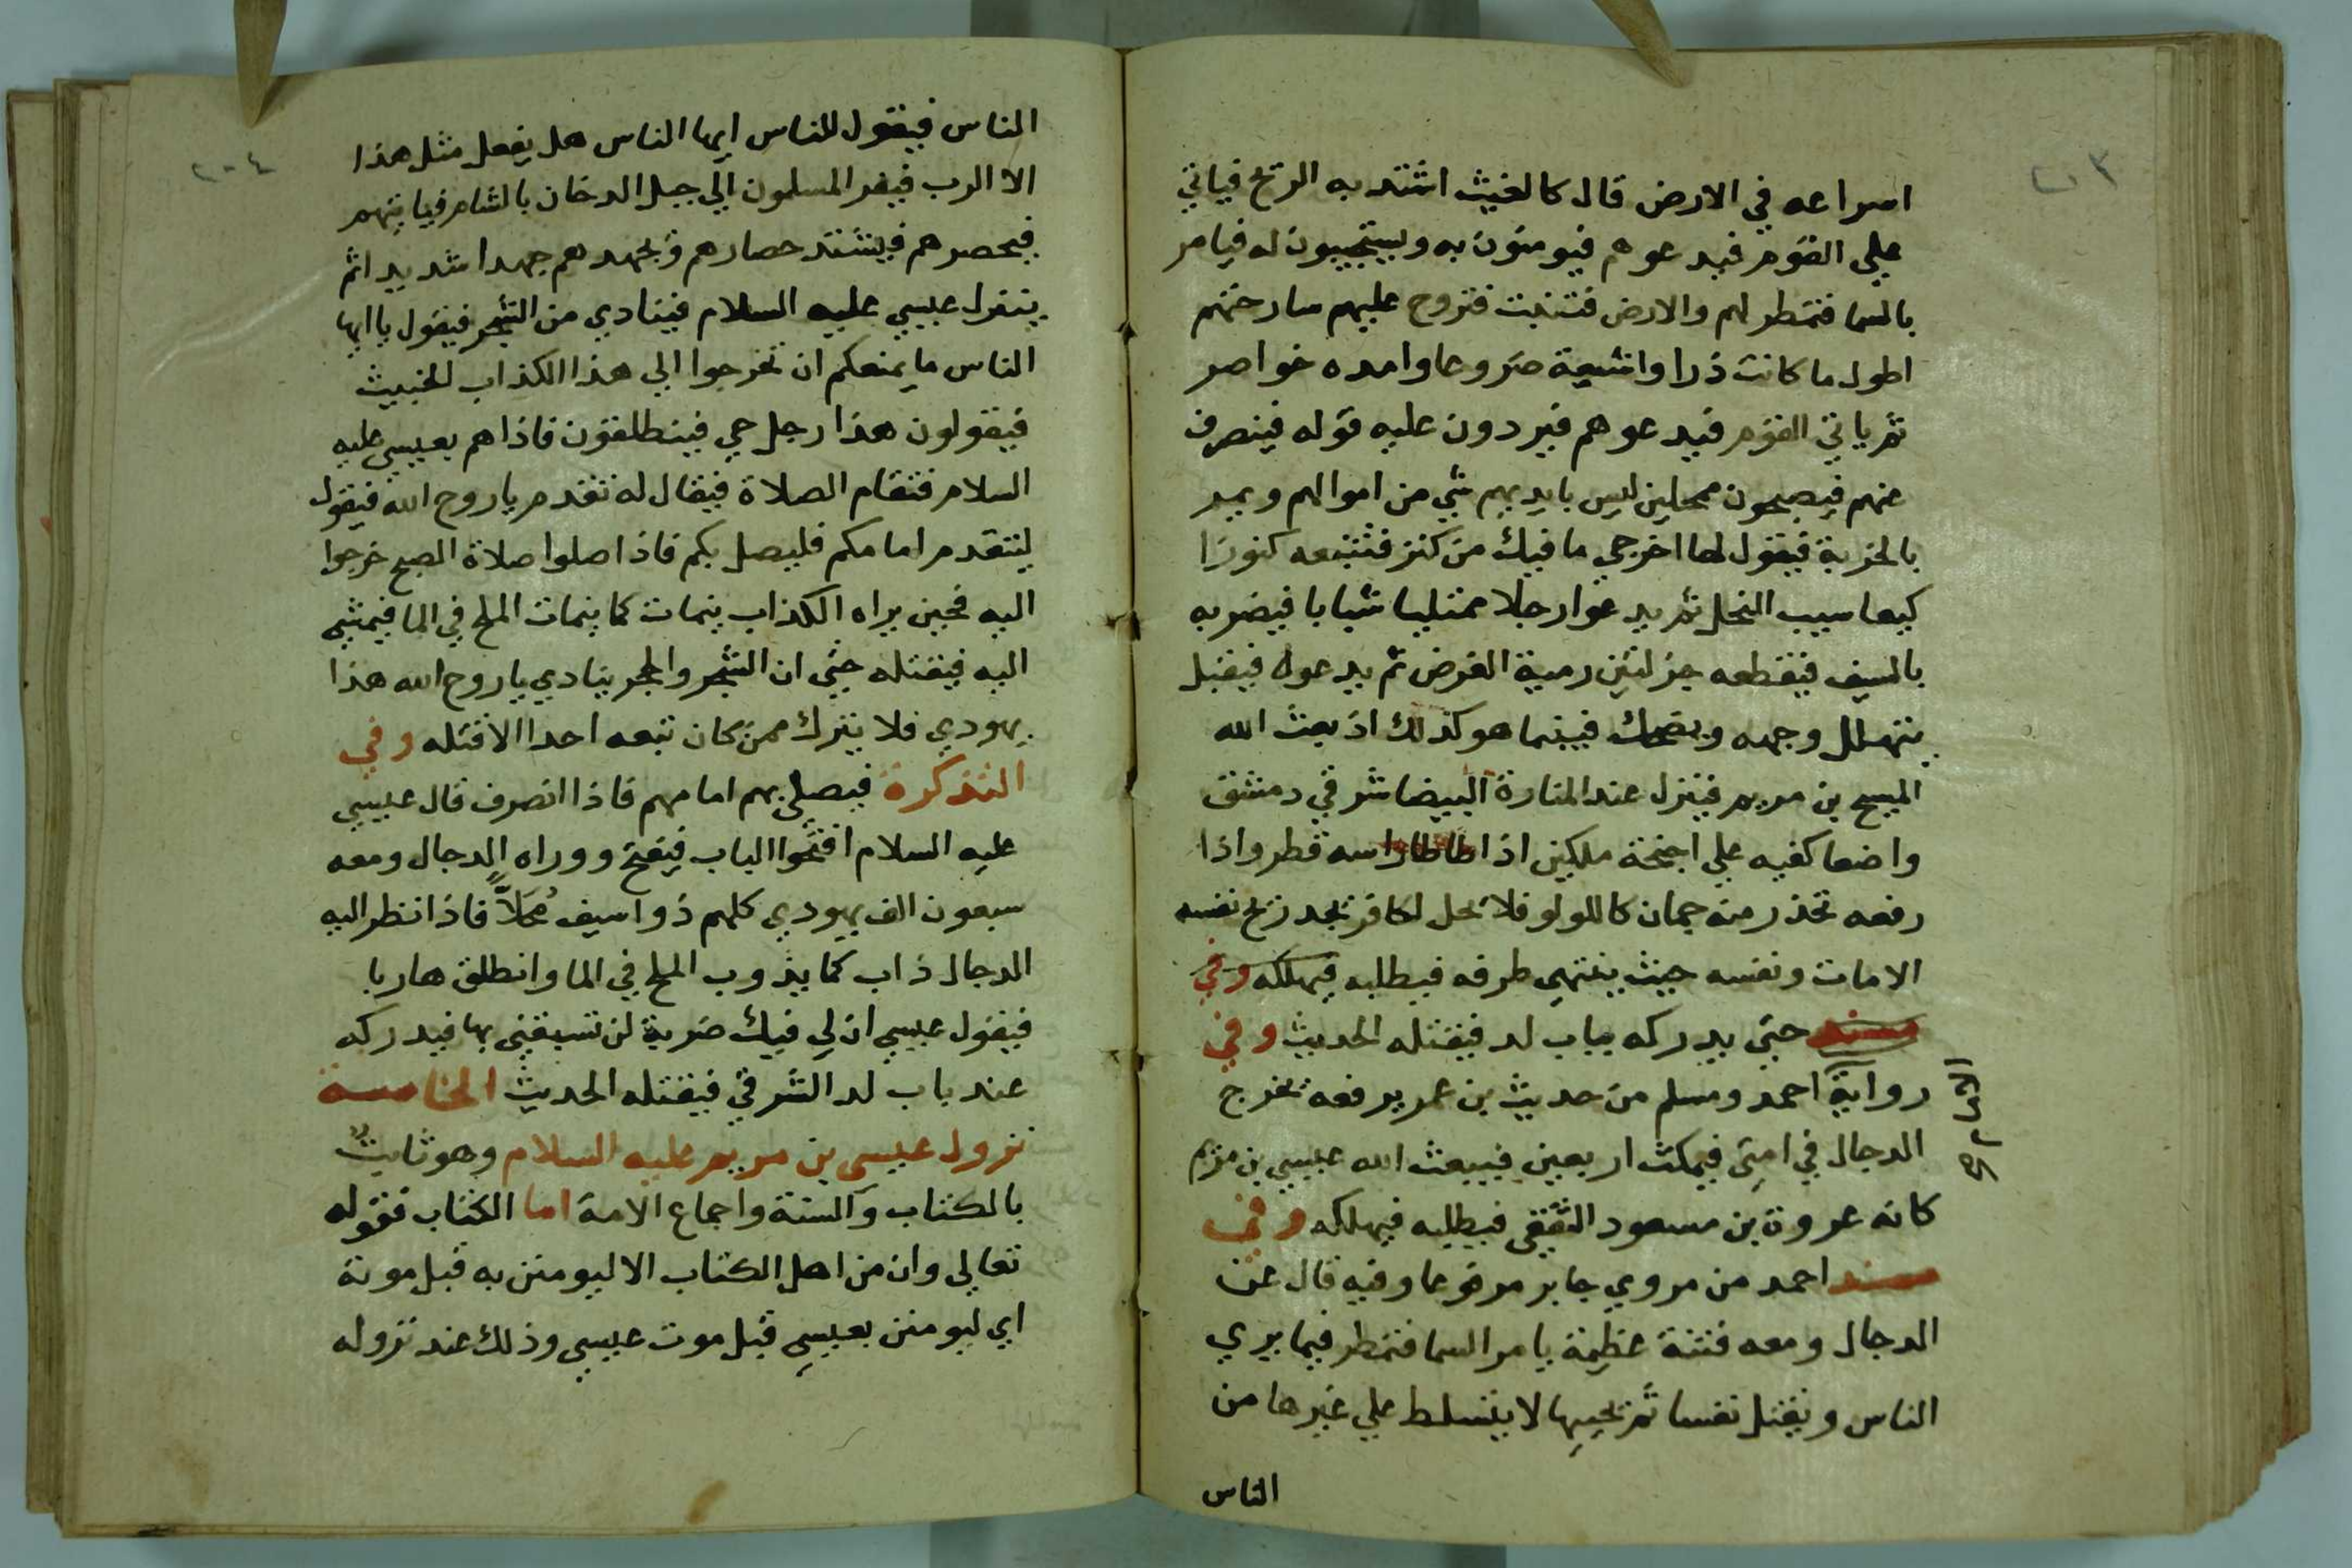 ٢٠٣
اسراعه في الارض قال كالغيث اشتد به الريح فياتي
علي القوم فيدعوهم فيومنون به ويستجيبون له فيامر
بالسما فتمطر لهم والارض فتنبت فتروح عليهم سارحتهم
اطول ما كانت ذرا واشيعة ضروعا وامده خواصر
ثم ياتي القوم فيدعوهم فيردون عليه قوله فينصرف
عنهم فيصبحون ممحلين ليس بايديهم شي من اموالهم ويمر
بالخربة فيقول لها اخرجي ما فيك من كنز فتتبعه كنوزا
كيعاسيب النحل ثم يدعوا رجلا ممتليا شبابا فيضربه
بالسيف فيقطعه جزلتين رمية الغرض ثم يدعوه فيقبل
يتهلل وجهه ويضحك فبينما هو كذلك اذ بعث الله
المسيح بن مريم فينزل عند المنارة البيضا شرقي دمشق
واضعا كفيه علي اجنحة ملكين اذا طاطا راسه قطر واذا
رفعه تحدر منه جمان كاللولو فلا يحل لكافر يجد ريح نفسه
الامات ونفسه حيث ينتهي طرفه فيطلبه فيهلكه وفي
مسند حتي يدركه بباب لد فيقتله الحديث وفي
رواية احمد ومسلم من حديث بن عمر يرفعه يخرج
الدجال في امتي فيمكث اربعين فيبعث الله عيسي بن مريم
كانه عروة بن مسعود الثقفي فيطلبه فيهلكه وفي
مسند احمد من مروي جابر مرفوعا وفيه قال عن
الدجال ومعه فتنة عظيمة يامر السما فتمطر فيما يري
الناس ويقتل نفسا ثم يحييها لا يتسلط علي غيرها من
الناس
٢٠٤
الناس فيقول للناس ايها الناس هل يفعل مثل هذا
الا الرب فيفر المسلمون الي جبل الدخان بالشام فياتيهم
فيحصرهم فيشتد حصارهم ويجهدهم جهدا شديدا ثم
ينزل عيسي عليه السلام فينادي من الشجر فيقول يا ايها
الناس ما يمنعكم ان تخرجوا الي هذا الكذاب الخبيث
فيقولون هذا رجل جي فينطلقون فاذا هم بعيسي عليه
السلام فتقام الصلاة فيقال له تقدم يا روح الله فيقول
ليتقدم امامكم فليصل بكم فاذا صلوا صلاة الصبح خرجوا
اليه فحين يراه الكذاب ينمات كما ينمات الملح في الما فيمشي
اليه فيقتله حتي ان الشجر والحجر ينادي يا روح الله هذا
يهودي فلا يترك ممن كان تبعه احدا الا قتله وفي
التذكرة فيصلي بهم امامهم فاذا انصرف قال عيسي
عليه السلام افتحوا الباب فيفتح ووراه الدجال ومعه
سبعون الف يهودي كلهم ذوا سيف محلاً فاذا نظر اليه
الدجال ذاب كما يذوب الملح في الما وانطلق هاربا
فيقول عيسي ان لي فيك ضربة لن تسبقني بها فيدركه
عند باب لد الشرقي فيقتله الحديث الخامسة
نزول عيسي بن مريم عليه السلام وهو ثابت
بالكتاب والسنة واجماع الامة اما الكتاب فقوله
تعالي وان من اهل الكتاب الا ليومنن به قبل موته
اي ليومنن بعيسي قبل موت عيسي وذلك عند نزوله